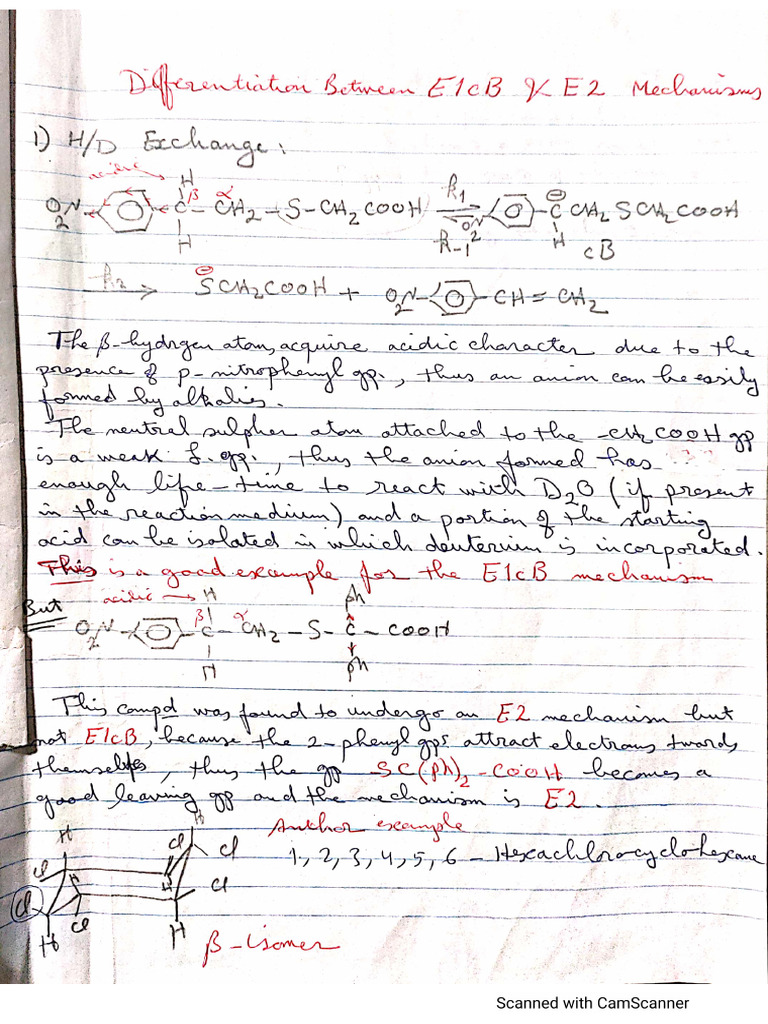 Differentiation Between E1cB & E2 Mechanisms
1) H/D Exchange:
acidic → H
O₂N- -C-CH₂-S-CH₂COOH k₁ k₋₁ O₂N -C CH₂SCH₂COOH
β α
H ⊖ H cB
k₂ → ⊖SCH₂COOH + O₂N- -CH=CH₂
The β-hydrgen atom, acquire acidic character due to the
presence of p-nitrophenyl gp., thus an anion can be easily
formed by alkalies.
The neutral sulpher atom attached to the -CH₂COOH gp
is a weak L. gp., thus the anion formed has ???
enough life-time to react with D₂O (if present
in the reaction medium) and a portion of the starting
acid can be isolated in which deuterium is incorporated.
This is a good example for the E1cB mechanism
But acidic → H Ph
O₂N- -C-CH₂-S-C-COOH
β α
H Ph
This compd was found to undergo an E2 mechanism but
not E1cB, because the 2-phenyl gps attract electrons twards
themselves, thus the gp SC(Ph)₂-COOH becomes a
good leaving gp and the mechanism is E2.
Anthor example
1, 2, 3, 4, 5, 6-Hexachlorocyclohexane
H H Cl Cl Cl H H Cl Cl Cl H H
β-isomer
Scanned with CamScanner